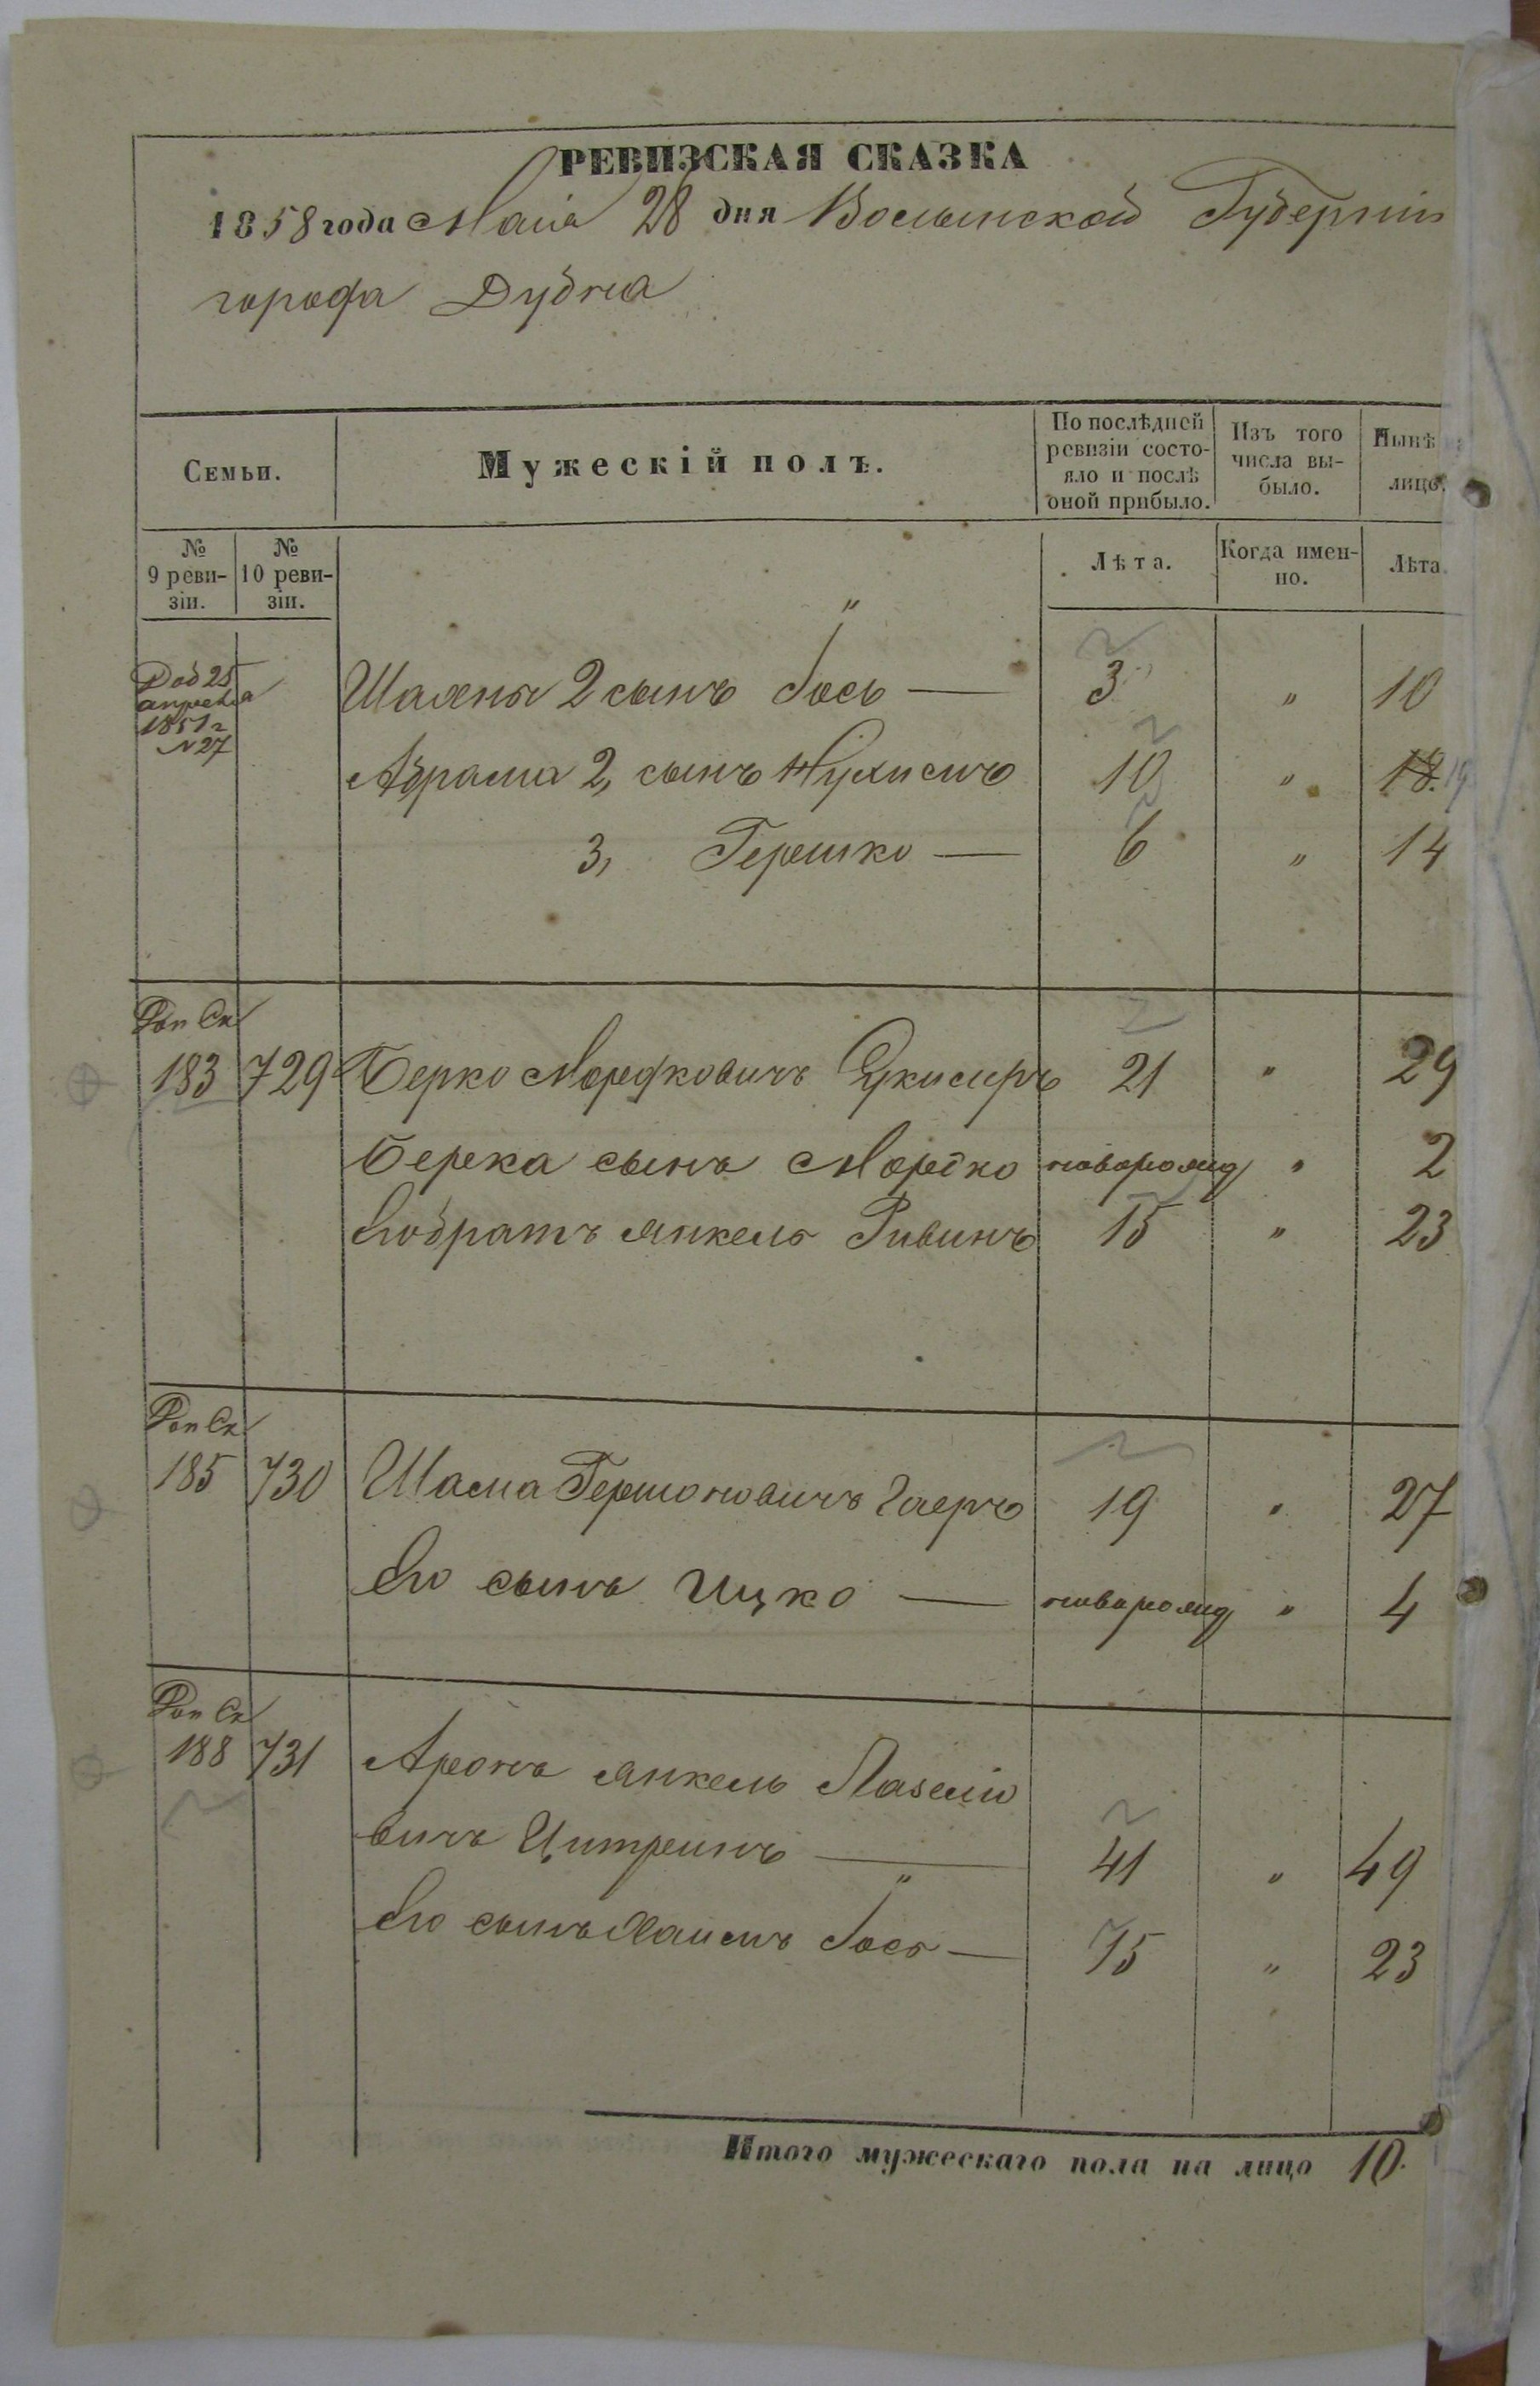 РЕВИЗСКАЯ СКАЗКА
1858 года Маія 28 дня Волынской Губерніи
города Дубна
Семьи.
Мужескій полъ.
По послѣдней ревизіи состо-
яло и послѣ
оной прибыло.
Изъ того
числа вы-
было.
Нынѣ
лицо.
№
9 реви-
зіи.
№
10 реви-
зіи.
Лѣта.
Когда имен-
но.
Лѣта
Доб 25
апреля
1851 г
N 27
Шаяны 2 сынъ Іось — 3 " 10
Абрама 2, сынъ Нухимъ 10 " 18. 19
3, Гершко — 6 " 14
Доп Ск
183 729 Берко Мордковичъ 21 " 29
Берека сынъ Мордко новорожд " 2
Его братъ Янкель Ривинъ 15 " 23
Доп Ск
185 730 Шама Гершоновичъ Гаеръ 19 " 27
Его сынъ Ицко — новорожд " 4
Доп Ск
188 731 Аронъ Янкель Лазеіо
вичъ Цитринъ — 41 " 49
Его сынъ Хаимъ Іось — 15 " 23
Итого мужескаго пола на лицо 10.